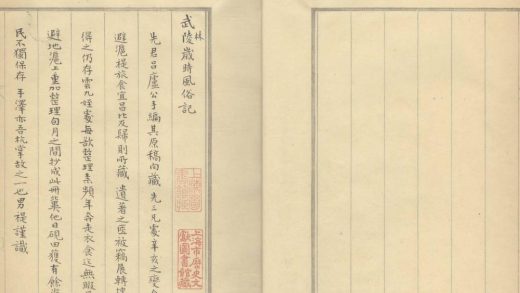 林
武陵歲時風俗記
先君吕廬公手編其原稿向藏 先三兄處辛亥之變
避滬禔旅食宜昌比及歸則所藏 遺著之匣被竊展轉
得之仍存雲九姪處每欲整理素頻年奔走衣食迄無暇
避地滬上重加整理旬月之間抄成此冊冀他日硯田獲有餘
民不獨保存 手澤亦吾杭掌故之一也男禔謹識
上海市歷史文
獻圖書館藏